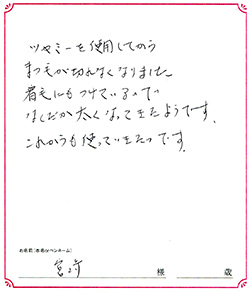 ツヤミーを使用してのち
まつ毛が切れなくなりました
眉毛にもつけているので
なんだか太くなってきたようです。
これからも使っていきたいです。
お名前（本名orペンネーム）
宮崎 様 歳